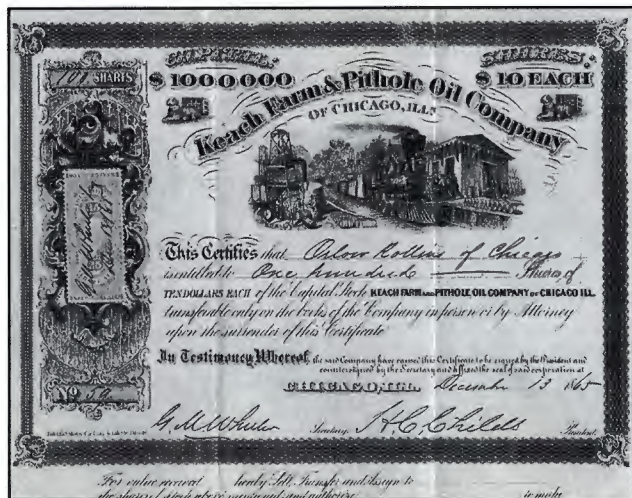 CAPITAL:
$1000000
SHARES:
$10 EACH
100 SHARES
Keach Farm & Pithole Oil Company
OF CHICAGO, ILLS
This Certifies that Orlow Rollins of Chicago
is entitled to One hundred Shares, of
TEN DOLLARS EACH of the Capital Stock KEACH FARM AND PITHOLE OIL COMPANY OF CHICAGO ILL.
transferable only on the books of the Company in person or by Attorney
upon the surrender of this Certificate
In Testimony Whereof, the said Company have caused this Certificate to be signed by the President and
countersigned by the Secretary and affixed the seal of said corporation at
CHICAGO, ILL. December 13 1865
No 59
G. M. Wheeler Secretary. H. C. Childs President
For value received hereby Sell, Transfer and Assign to
the shares of stock above mentioned, and authorize
to make